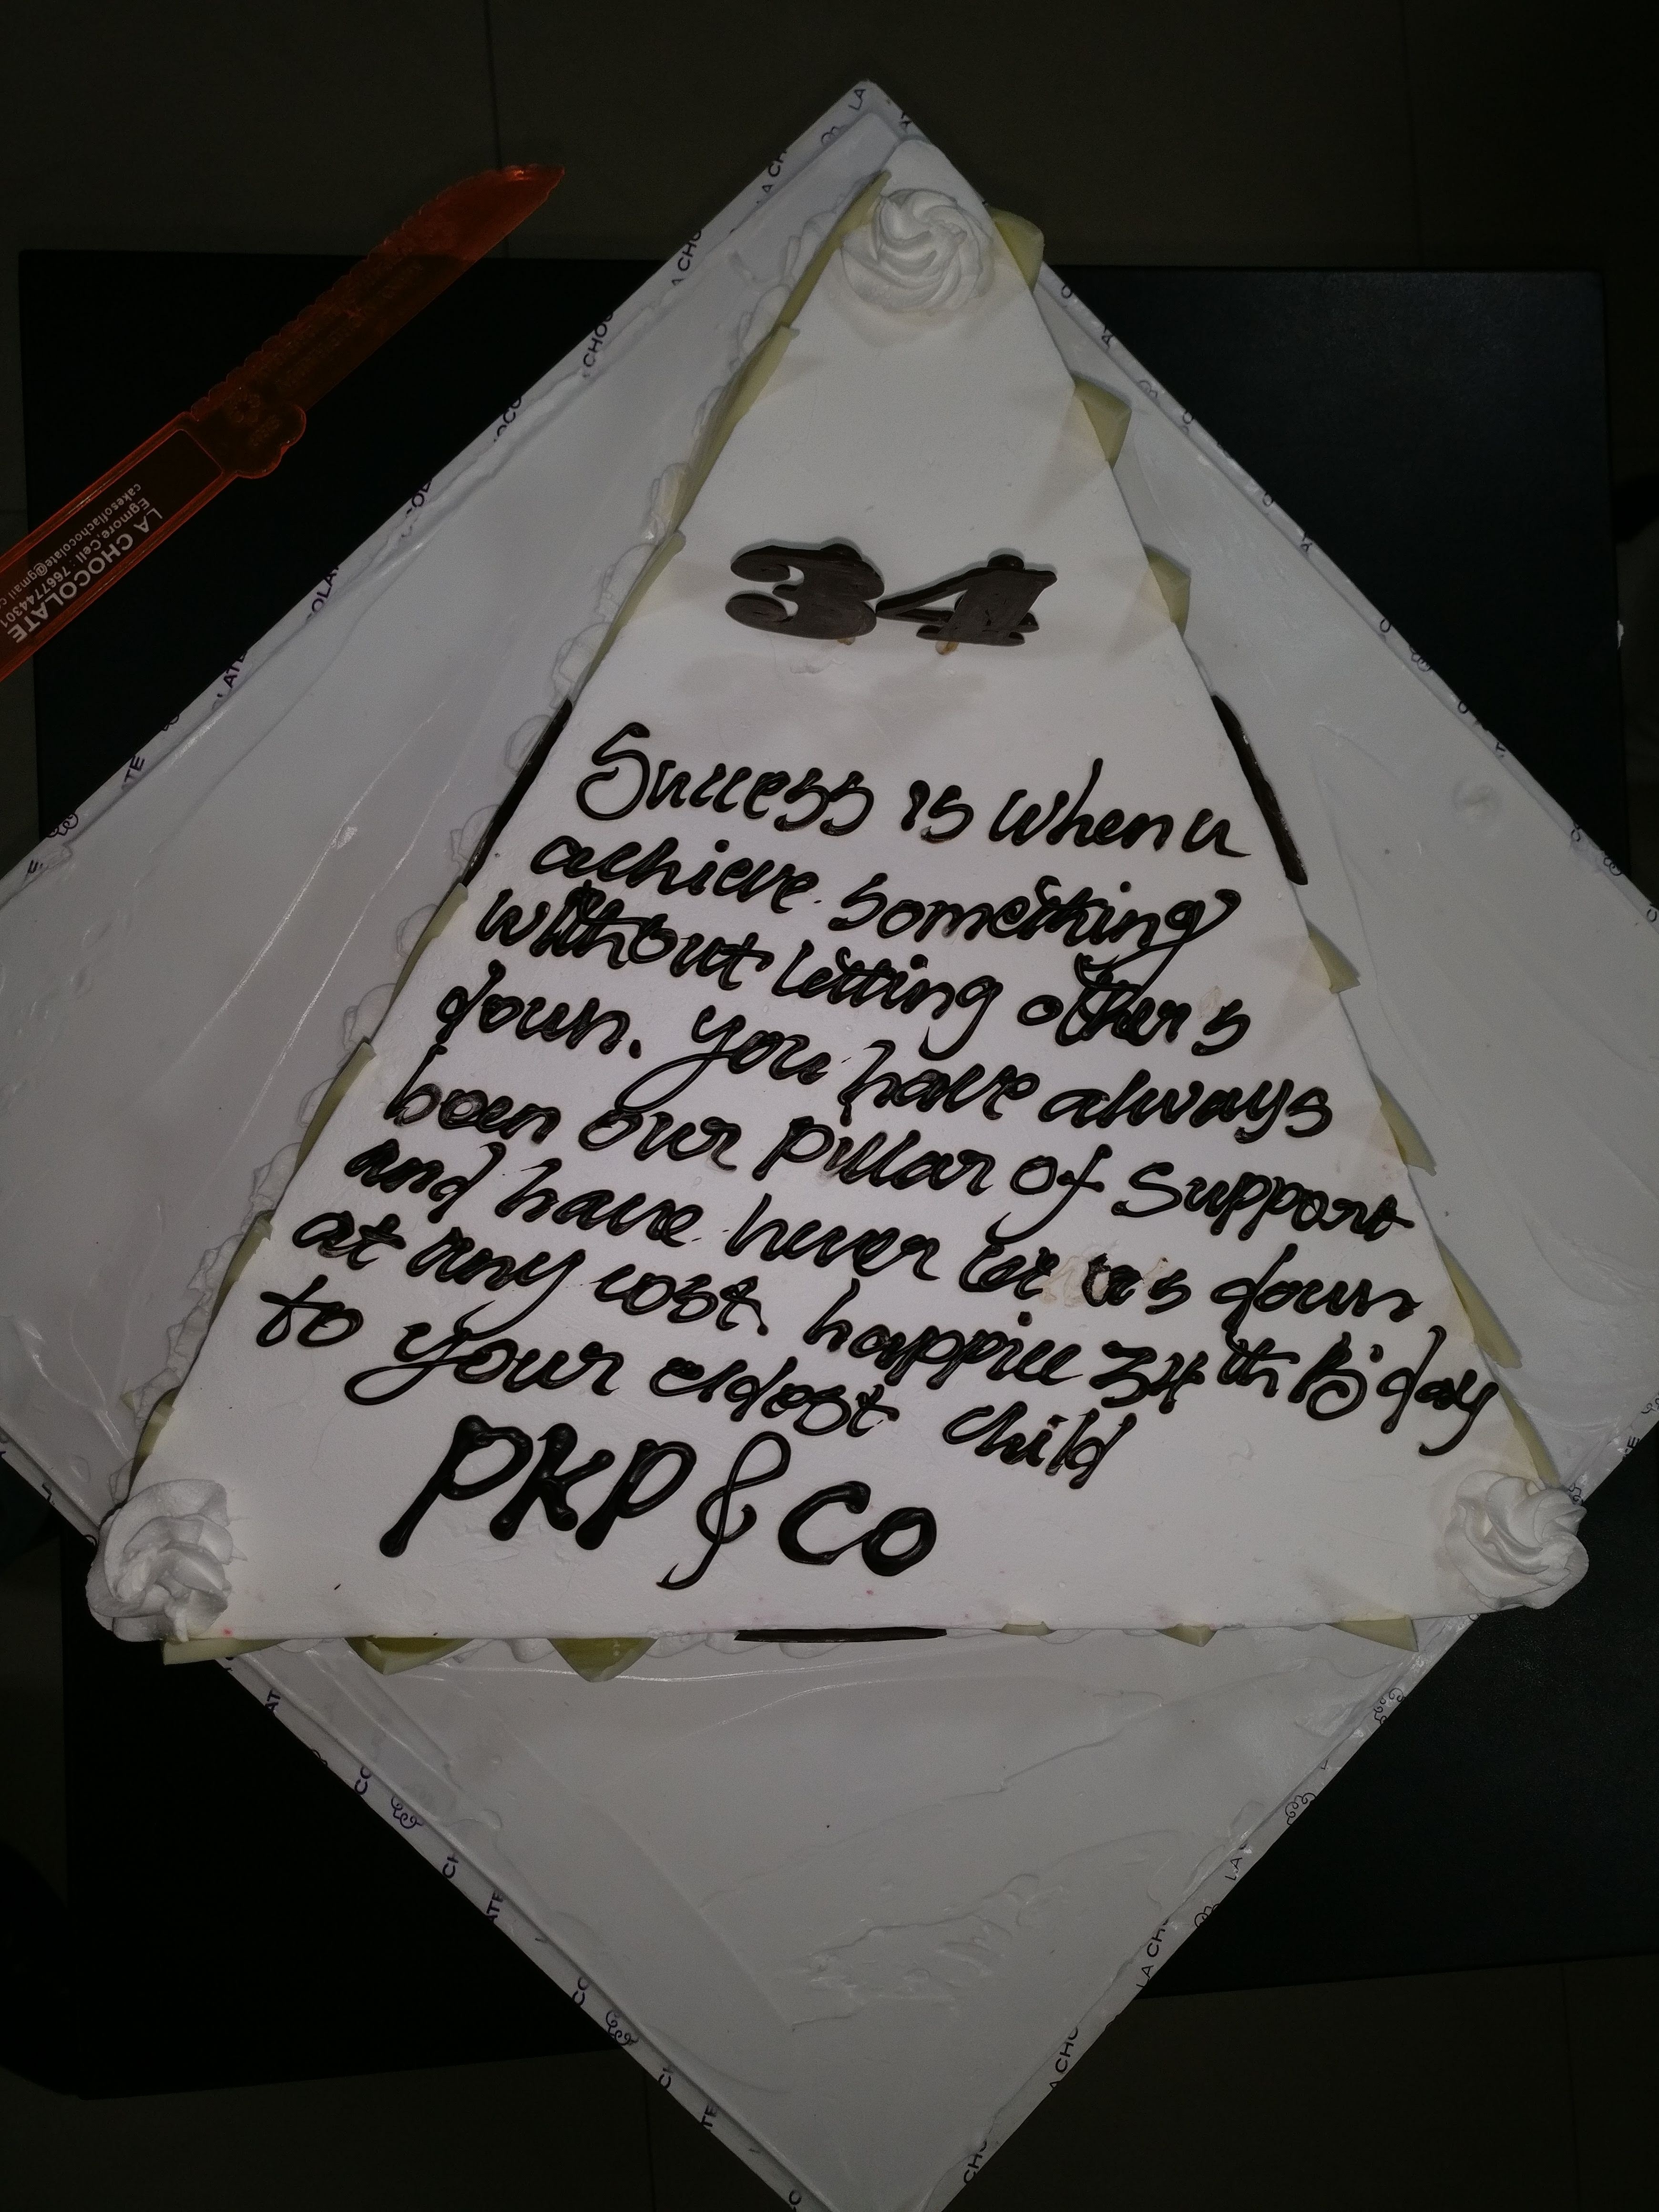 34
Success is when u
achieve something
without letting others
down. you have always
been our pillar of support
and have never let us down
at any cost. happiee 34th B'day
to your eldest child
PKP & CO
LA CHOCOLATE
Egmore,Cell : 7667744301
cakesoflachocolate@gmail.c